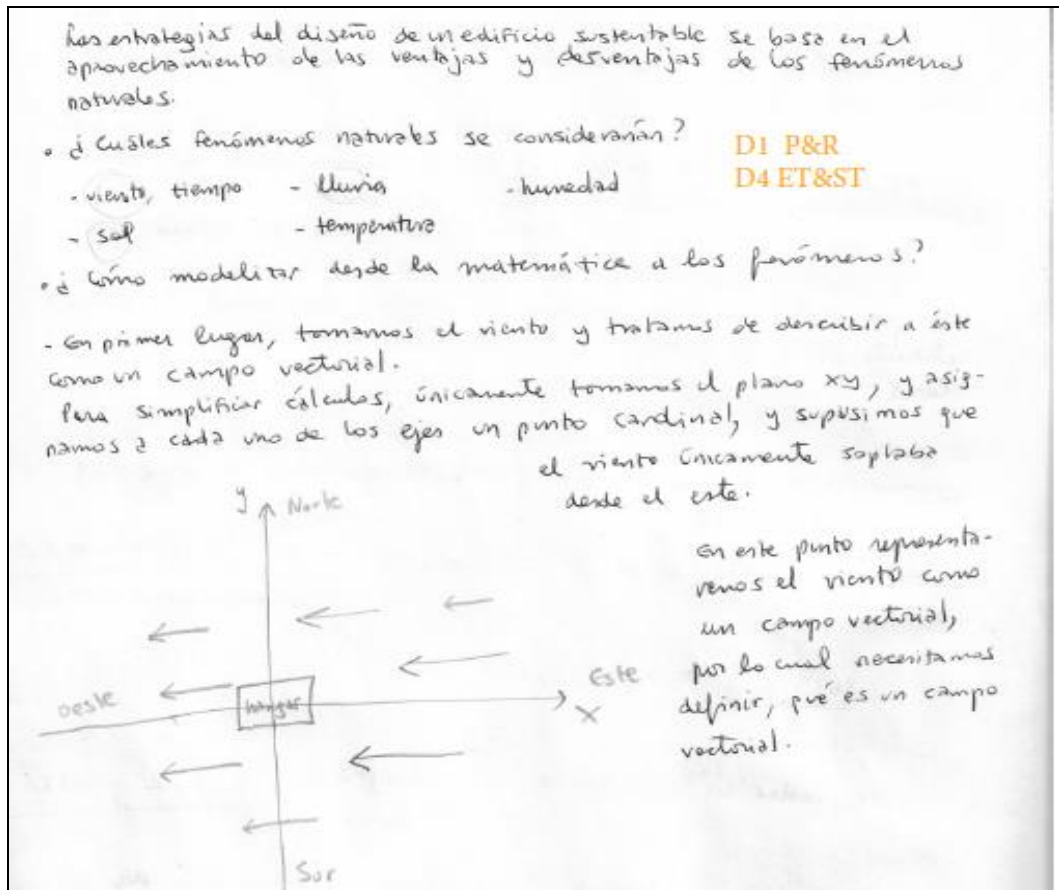 Las estrategias del diseño de un edificio sustentable se basa en el
aprovechamiento de las ventajas y desventajas de los fenómenos
naturales.
• ¿Cuáles fenómenos naturales se considerarán?
D1 P&R
- viento, tiempo - lluvia - humedad
D4 ET&ST
- sol - temperatura
• ¿Cómo modelizar desde la matemática a los fenómenos?
- En primer lugar, tomamos el viento y tratamos de describir a éste
como un campo vectorial.
Para simplificar cálculos, únicamente tomamos el plano xy, y asig-
namos a cada uno de los ejes un punto cardinal, y supusimos que
el viento únicamente soplaba
desde el este.
y Norte
En este punto representa-
remos el viento como
un campo vectorial,
por lo cual necesitamos
definir, qué es un campo
vectorial.
Este
x
oeste
hangar
Sur